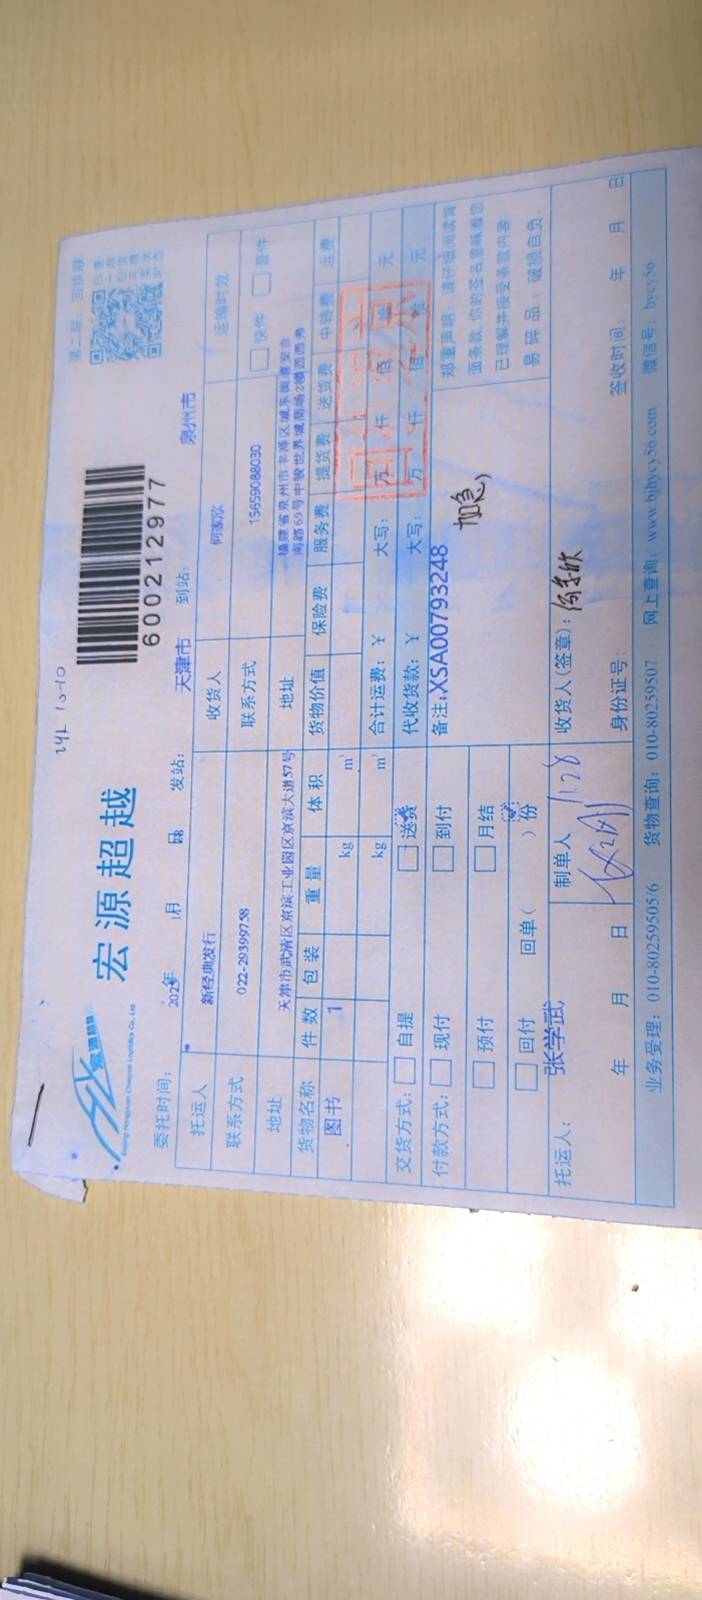 第二联：回执联
宏源超越
Beijing Hongyuan Chaoyue Logistics Co., Ltd
600212977
委托时间： 2025年 1月 日 发站： 天津市 到站： 泉州市
托运人 新经典发行 收货人 何家欣 运输时效
联系方式 022-29399758 联系方式 15659088030 快件 普件
地址 天津市武清区京滨工业园区京滨大道57号 地址 福建省泉州市丰泽区城东街道安吉
南路69号中骏世界城商场2楼西西弗
货物名称 件数 包装 重量 体积 货物价值 保险费 服务费 提货费 送货费 中转费 运费
图书 1 kg m³
kg m³ 合计运费：￥ 大写： 万 仟 佰 拾 元
交货方式： 自提 送货 代收货款：￥ 大写： 万 仟 佰 拾 元
付款方式： 现付 到付 备注：XSA00793248 加急
预付 月结
回付 回单( )份
郑重声明：请仔细阅读背
面条款，你的签名意味着您
已理解并接受条款内容。
易碎品：破损自负。
托运人： 张学武 制单人 收货人(签章)：何家欣
1.28
年 月 日 身份证号： 签收时间： 年 月 日
业务受理：010-80259505/6 货物查询：010-80259507 网上查询：www.bjhycy56.com 微信号：hycy56